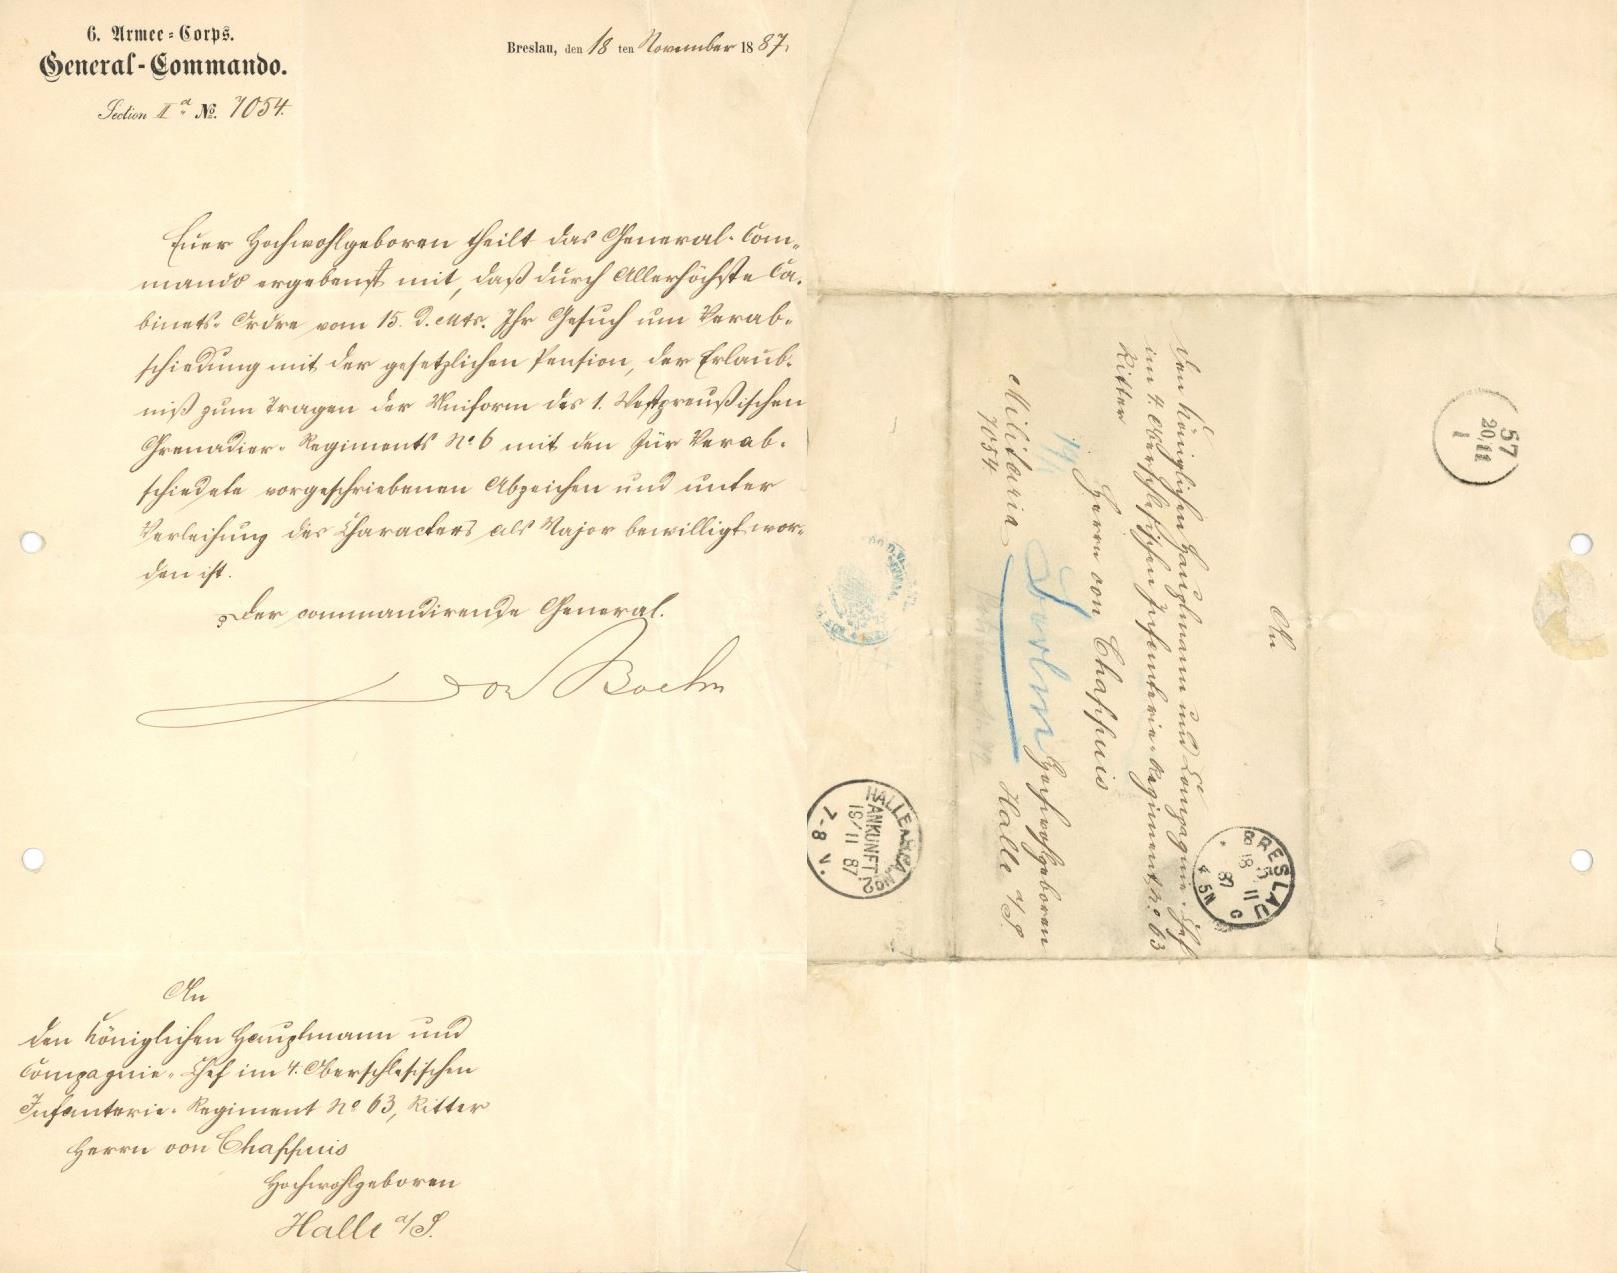 6. Armee-Corps.
General-Commando.
Section IIa No. 7054.
Breslau, den 18 ten November 1887.
Euer Hochwohlgeboren theilt das General-Com-
mando ergebenst mit, daß durch Allerhöchste Ca-
binets-Ordre vom 15. d. Mts. Ihr Gesuch um Verab-
schiedung mit der gesetzlichen Pension, der Erlaub-
niß zum Tragen der Uniform des 1. Westpreußischen
Grenadier-Regiments No 6 mit den für Verab-
schiedete vorgeschriebenen Abzeichen und unter
Verleihung des Characters als Major bewilligt wor-
den ist.
Der commandirende General.
von Boehn
An
den Königlichen Hauptmann und
Compagnie-Chef im 4. Oberschlesischen
Infanterie-Regiment No 63, Ritter
Herrn von Chappuis
Hochwohlgeboren
Halle a/S.
An
den Königlichen Hauptmann und Compagnie-Chef
im 4. Oberschlesischen Infanterie-Regiment No 63
Ritter
Herrn von Chappuis
Hochwohlgeboren
Militaria
7054.
Halle a/S.
BRESLAU
18 11
87
4-5N
C
HALLE
ANKUNFT
19/11 87
7-8 V.
57
20 11
1